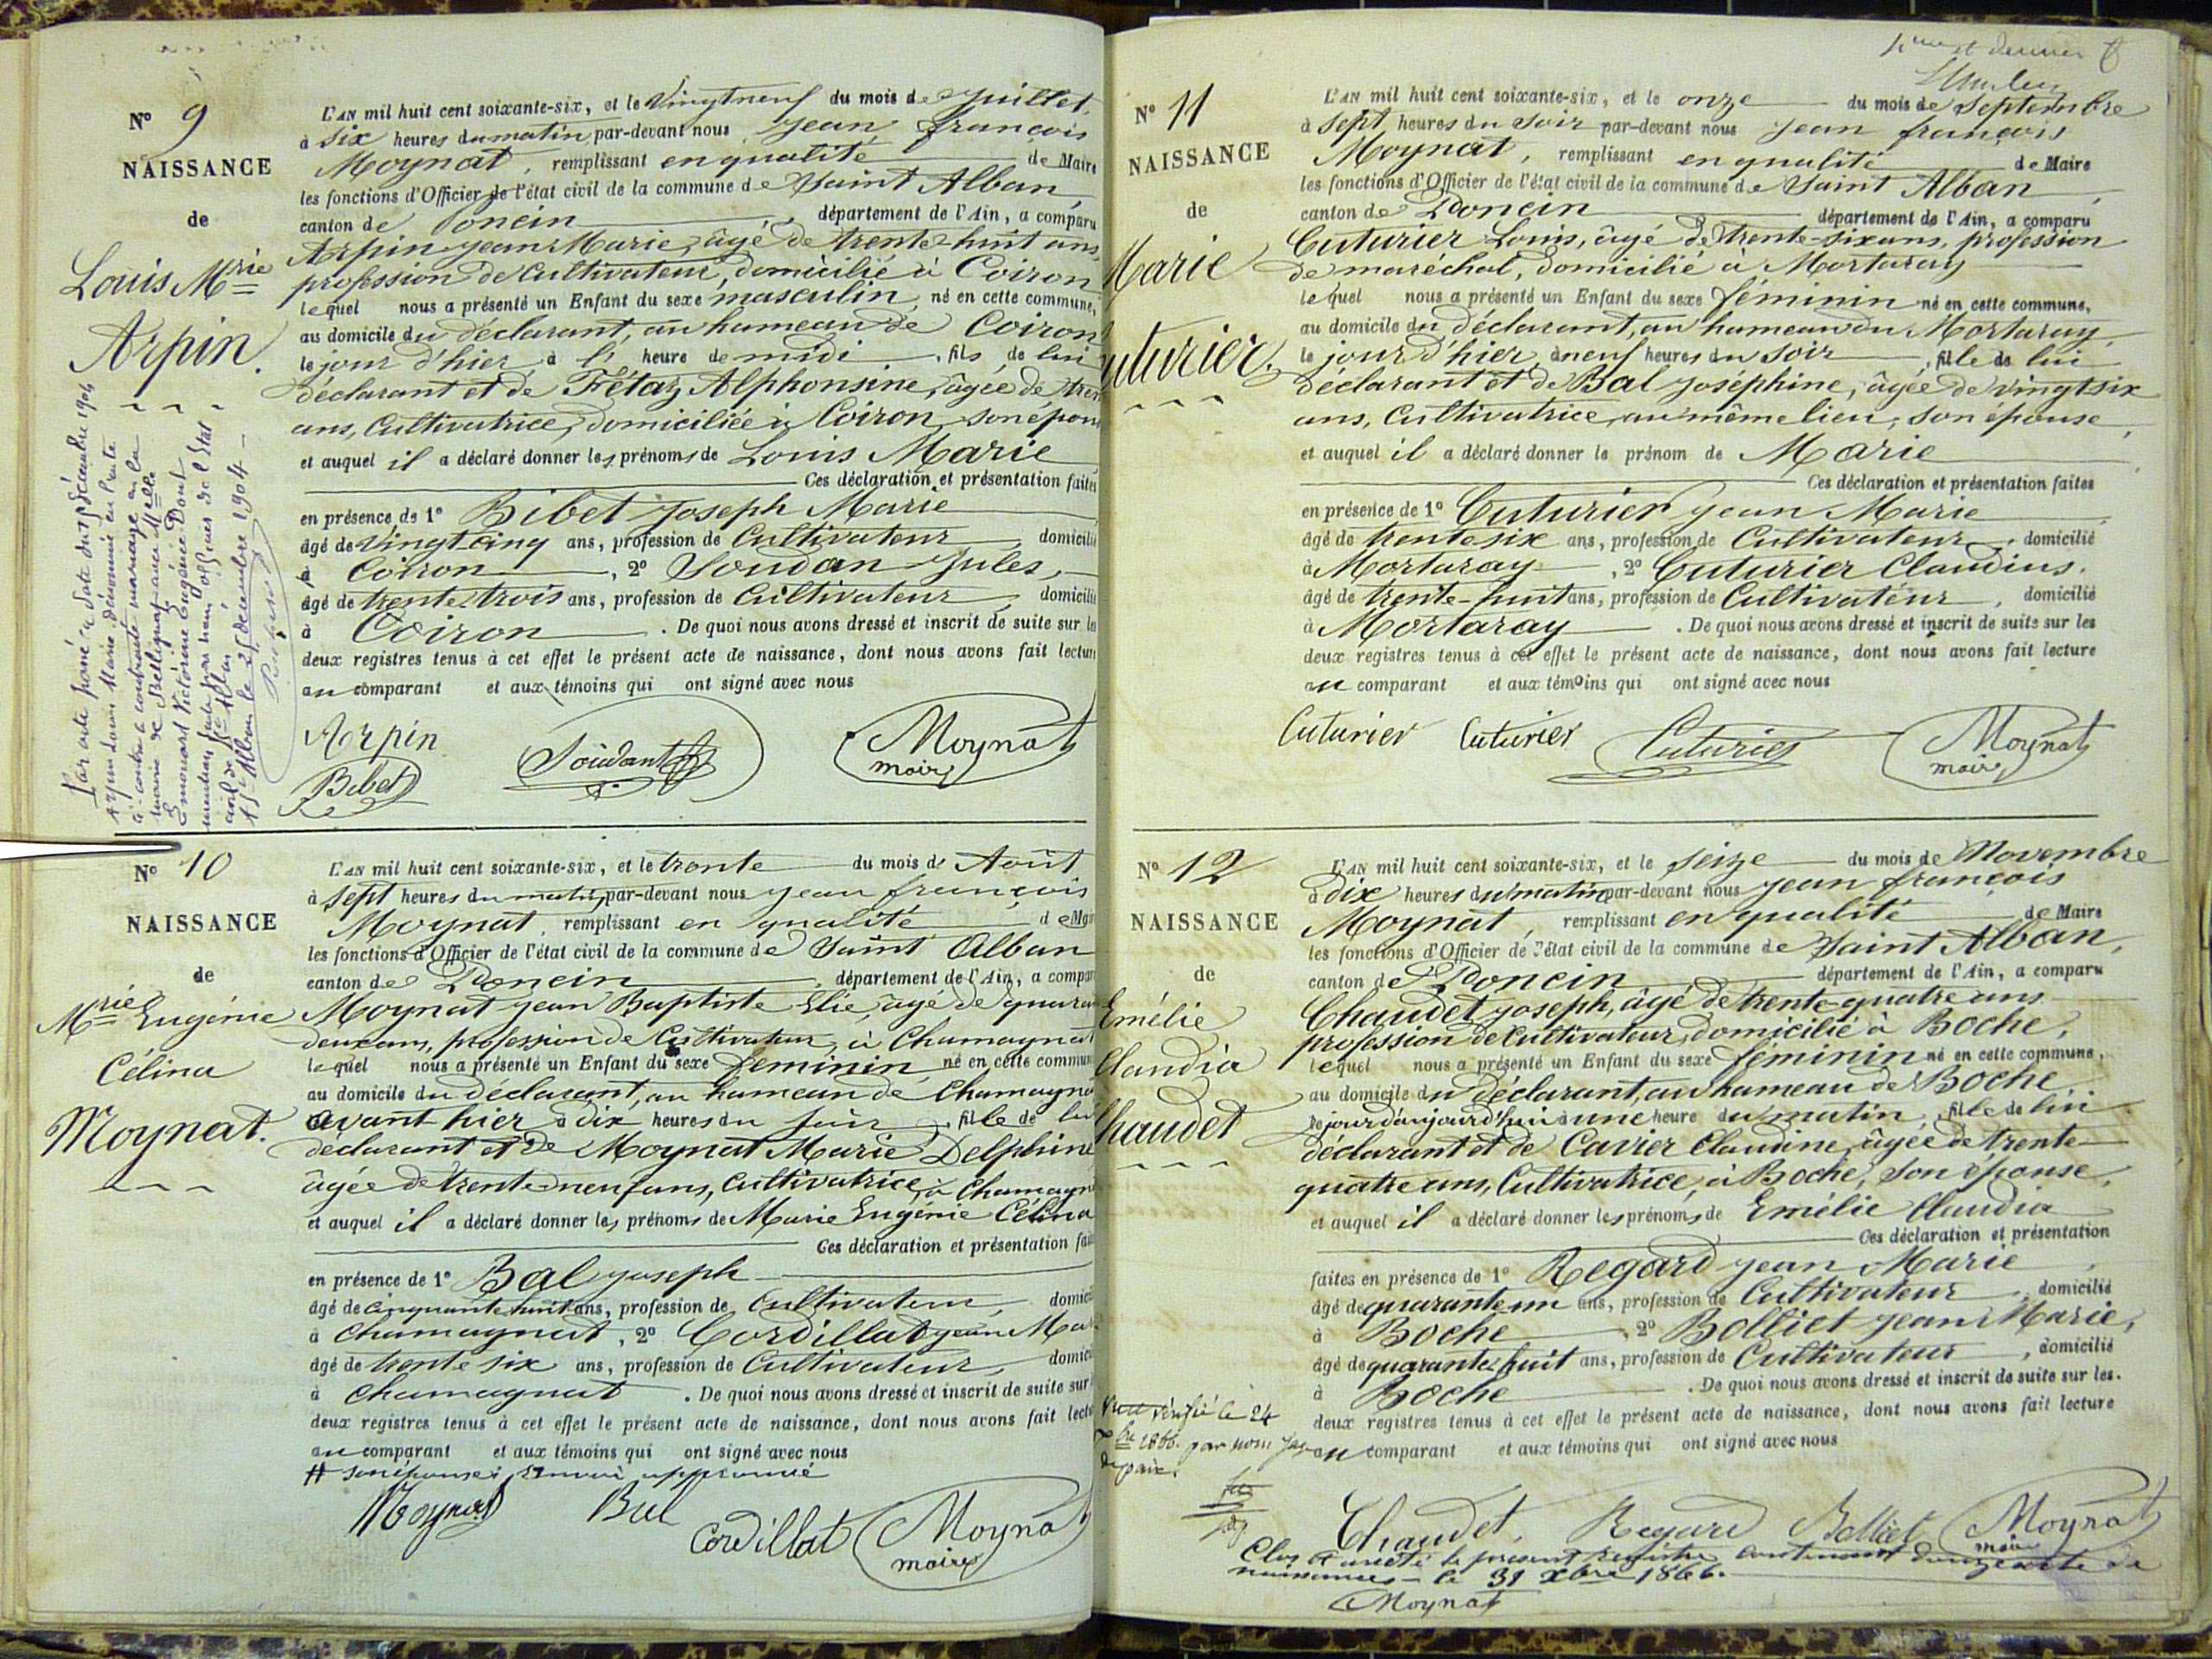 N° 9
NAISSANCE
de
Louis Mrie
Arpin.
L'AN mil huit cent soixante-six, et le Vingtneuf du mois de Juillet
à six heures du matin, par-devant nous Jean françois
Moynat, remplissant en qualité de Maire
les fonctions d'Officier de l'état civil de la commune de Saint Alban,
canton de Poncin, département de l'Ain, a comparu
Arpin Jean Marie, âgé de trente huit ans,
profession de Cultivateur, domicilié à Coiron
lequel nous a présenté un Enfant du sexe masculin, né en cette commune,
au domicile du déclarant, au hameau de Coiron
le jour d'hier, à l' heure de midi, fils de lui
déclarant et de Fétaz Alphonsine, âgée de
ans, Cultivatrice, domiciliée à Coiron, son
et auquel il a déclaré donner les prénoms de Louis Marie
Ces déclaration et présentation faites
en présence de 1° Bibet Joseph Marie
âgé de Vingt cinq ans, profession de Cultivateur, domicilié
à Coiron, 2° Soudan Jules,
âgé de trente trois ans, profession de Cultivateur, domicilié
à Coiron. De quoi nous avons dressé et inscrit de suite sur les
deux registres tenus à cet effet le présent acte de naissance, dont nous avons fait lecture
au comparant et aux témoins qui ont signé avec nous
Arpin
Soudant
Moynat
maire
Bibet
Par acte passé à date du décembre 1904
Arpin Louis Marie dénommé en l'acte
ci-contre a contracté mariage en la
mairie de Bélignat avec Melle
Victorine Eugénie Dont
mention faite par nous officier de l'Etat
civil de St Alban
St Alban le 25 décembre 1904
N° 10
NAISSANCE
de
Mrie Eugénie
Célina
Moynat.
L'AN mil huit cent soixante-six, et le trente du mois de Août
à sept heures du matin, par-devant nous Jean françois
Moynat, remplissant en qualité de
les fonctions d'Officier de l'état civil de la commune de Saint Alban
canton de Poncin, département de l'Ain, a
Moynat Jean Baptiste Elie, âgé de
deux ans, profession de Cultivateur, à Chamagnat
lequel nous a présenté un Enfant du sexe féminin né en cette
au domicile du déclarant, au hameau de
avant hier à dix heures du soir, fille de lui
déclarant et de Moynat Marie Delphine
âgée de trente neuf ans, Cultivatrice, à
et auquel il a déclaré donner les prénoms de Marie Eugénie Célina
Ces déclaration et présentation
en présence de 1° Bal Joseph
âgé de cinquante huit ans, profession de Cultivateur,
à Chamagnat, 2° Cordillat Jean
âgé de trente six ans, profession de Cultivateur,
à Chamagnat. De quoi nous avons dressé et inscrit de suite sur
deux registres tenus à cet effet le présent acte de naissance, dont nous avons fait
au comparant et aux témoins qui ont signé avec nous
# son épouse; renvoi approuvé
Moynat Bal
Cordillat Moynat
maire
dernier
N° 11
NAISSANCE
de
Marie
uturier.
L'AN mil huit cent soixante-six, et le onze du mois de Septembre
à sept heures du soir par-devant nous Jean françois
Moynat, remplissant en qualité de Maire
les fonctions d'Officier de l'état civil de la commune de Saint Alban,
canton de Poncin département de l'Ain, a comparu
Cuturier Louis, âgé de trente-six ans, profession
de maréchal, domicilié à Mortaray
lequel nous a présenté un Enfant du sexe féminin né en cette commune,
au domicile du déclarant, au hameau du Mortaray,
le jour d'hier, à neuf heures du soir, fille de lui
déclarant et de Bal Joséphine, âgée de vingt six
ans, Cultivatrice, au même lieu, son épouse,
et auquel il a déclaré donner le prénom de Marie
Ces déclaration et présentation faites
en présence de 1° Cuturier Jean Marie
âgé de trente six ans, profession de Cultivateur, domicilié
à Mortaray, 2° Cuturier Claudius.
âgé de trente-huit ans, profession de Cultivateur, domicilié
à Mortaray. De quoi nous avons dressé et inscrit de suite sur les
deux registres tenus à cet effet le présent acte de naissance, dont nous avons fait lecture
au comparant et aux témoins qui ont signé avec nous
Cuturier Cuturier Cuturier Moynat
maire
N° 12
NAISSANCE
de
Emélie
Claudia
haudet
L'AN mil huit cent soixante-six, et le seize du mois de Novembre
à dix heures du matin par-devant nous Jean françois
Moynat, remplissant en qualité de Maire
les fonctions d'Officier de l'état civil de la commune de Saint Alban,
canton de Poncin département de l'Ain, a comparu
Chaudet Joseph, âgé de trente quatre ans
profession de Cultivateur, domicilié à Boche,
lequel nous a présenté un Enfant du sexe féminin né en cette commune,
au domicile du déclarant, au hameau de Boche
le jour d'aujourd'hui à une heure du matin, fille de lui
déclarant et de Cavier Claudine, âgée de trente
quatre ans, Cultivatrice, à Boche, son épouse,
et auquel il a déclaré donner les prénoms de Emélie Claudia
Ces déclaration et présentation
faites en présence de 1° Regard Jean Marie,
âgé de quarante un ans, profession de Cultivateur, domicilié
à Boche, 2° Bolliet Jean Marie,
âgé de quarante huit ans, profession de Cultivateur, domicilié
à Boche. De quoi nous avons dressé et inscrit de suite sur les.
deux registres tenus à cet effet le présent acte de naissance, dont nous avons fait lecture
au comparant et aux témoins qui ont signé avec nous
vérifié le 24
1866. par nous Juge
de paix.
Chaudet. Regard Bolliet Moynat
maire
Clos et arrêté le présent registre contenant douze acte de
naissances le 31 Xbre 1866.
Moynat